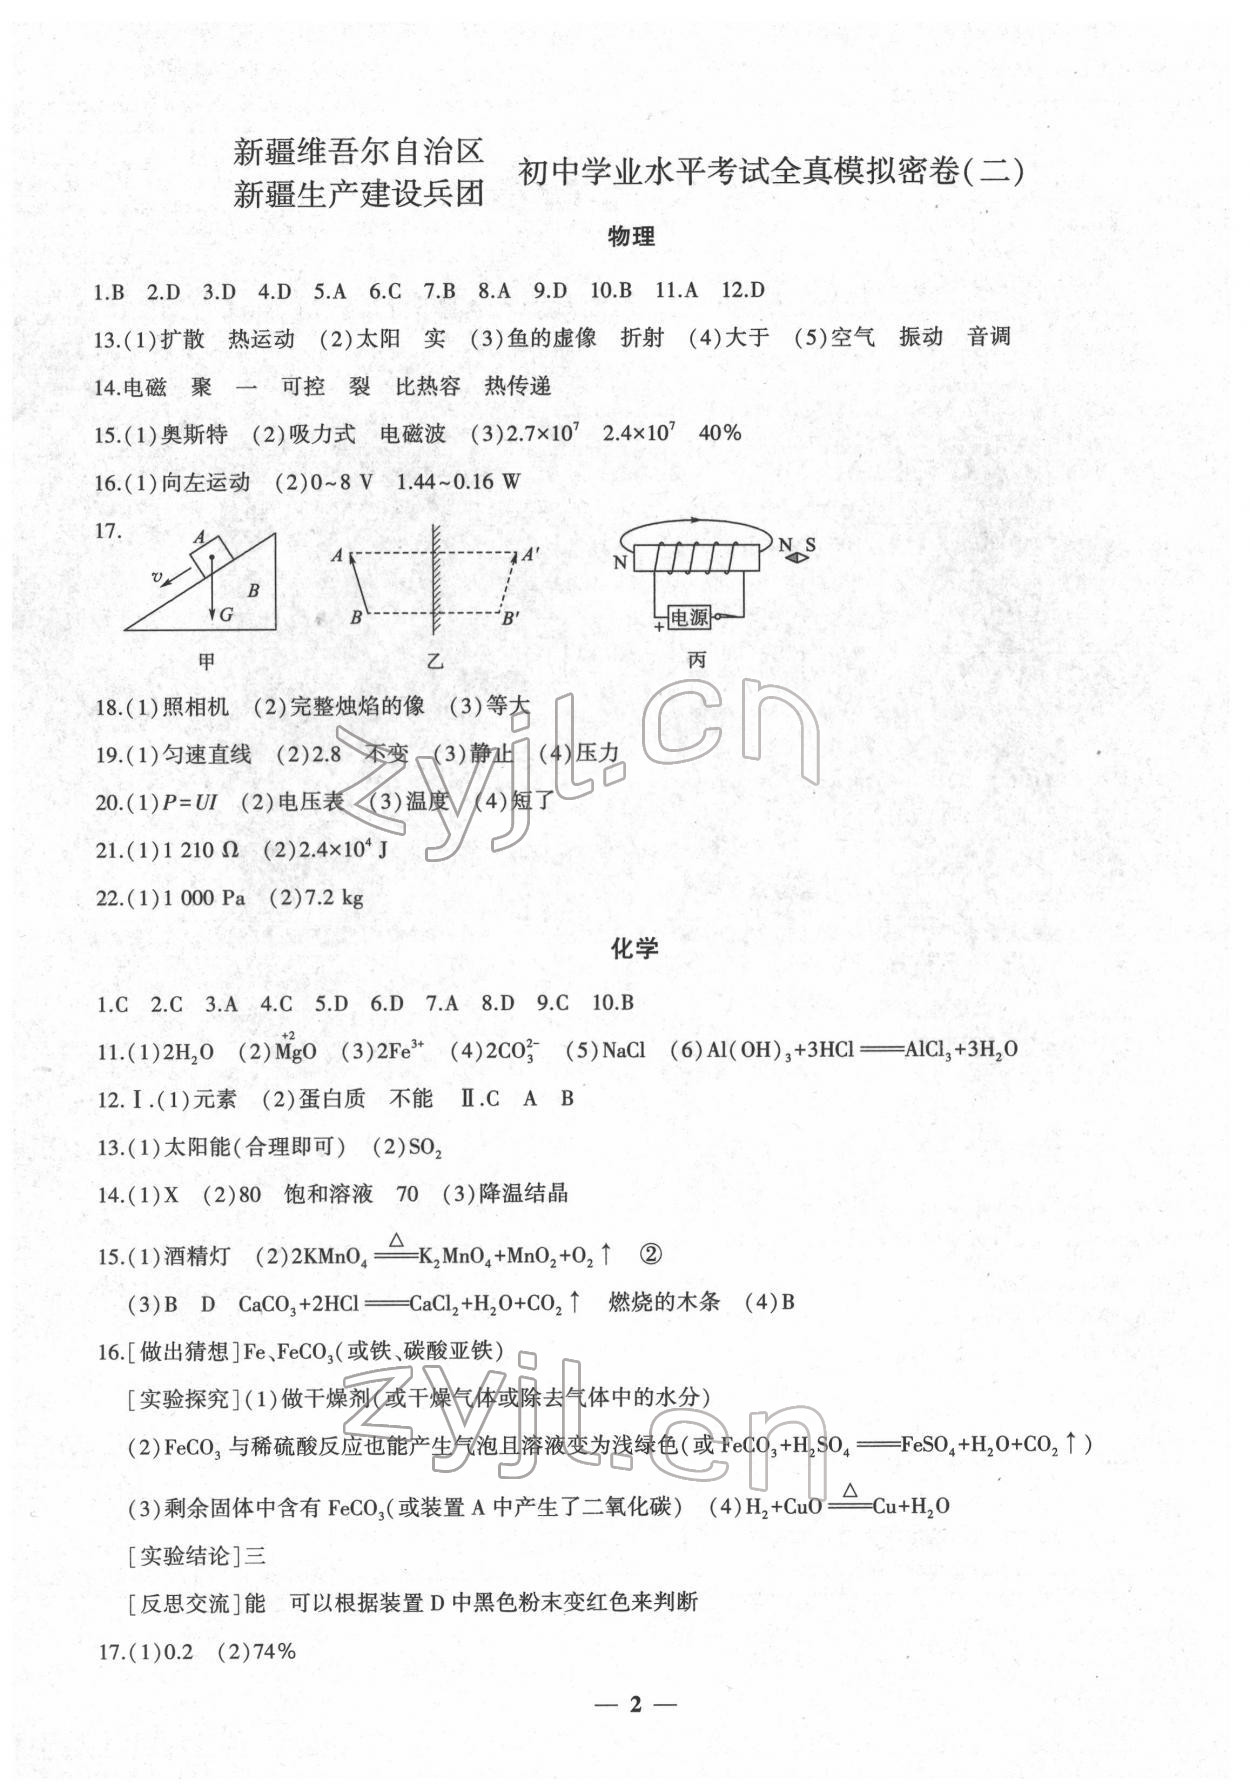 新疆维吾尔自治区
新疆生产建设兵团
初中学业水平考试全真模拟密卷(二)
物理
1.B 2.D 3.D 4.D 5.A 6.C 7.B 8.A 9.D 10.B 11.A 12.D
13.(1)扩散 热运动 (2)太阳 实 (3)鱼的虚像 折射 (4)大于 (5)空气 振动 音调
14.电磁 聚 一 可控 裂 比热容 热传递
15.(1)奥斯特 (2)吸力式 电磁波 (3)2.7×10⁷ 2.4×10⁷ 40%
16.(1)向左运动 (2)0~8 V 1.44~0.16 W
17.
A v B G
甲
A A' B B'
乙
N N S + 电源
丙
18.(1)照相机 (2)完整烛焰的像 (3)等大
19.(1)匀速直线 (2)2.8 不变 (3)静止 (4)压力
20.(1)P=UI (2)电压表 (3)温度 (4)短了
21.(1)1 210 Ω (2)2.4×10⁴ J
22.(1)1 000 Pa (2)7.2 kg
zyjl.cn
化学
1.C 2.C 3.A 4.C 5.D 6.D 7.A 8.D 9.C 10.B
11.(1)2H₂O (2)M̊gO +2 (3)2Fe³⁺ (4)2CO₃²⁻ (5)NaCl (6)Al(OH)₃+3HCl══AlCl₃+3H₂O
12.Ⅰ.(1)元素 (2)蛋白质 不能 Ⅱ.C A B
13.(1)太阳能(合理即可) (2)SO₂
14.(1)X (2)80 饱和溶液 70 (3)降温结晶
15.(1)酒精灯 (2)2KMnO₄ ══△ K₂MnO₄+MnO₂+O₂↑ ②
(3)B D CaCO₃+2HCl══CaCl₂+H₂O+CO₂↑ 燃烧的木条 (4)B
16.[做出猜想]Fe、FeCO₃(或铁、碳酸亚铁)
[实验探究](1)做干燥剂(或干燥气体或除去气体中的水分)
(2)FeCO₃与稀硫酸反应也能产生气泡且溶液变为浅绿色(或FeCO₃+H₂SO₄══FeSO₄+H₂O+CO₂↑)
(3)剩余固体中含有FeCO₃(或装置A中产生了二氧化碳) (4)H₂+CuO ══△ Cu+H₂O
[实验结论]三
[反思交流]能 可以根据装置D中黑色粉末变红色来判断
17.(1)0.2 (2)74%
zyjl.cn
— 2 —